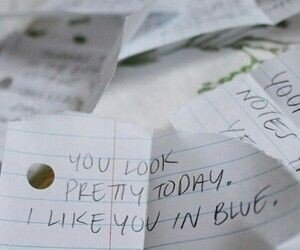 YOU LOOK
PRETTY TODAY.
I LIKE YOU IN BLUE.
NOTES